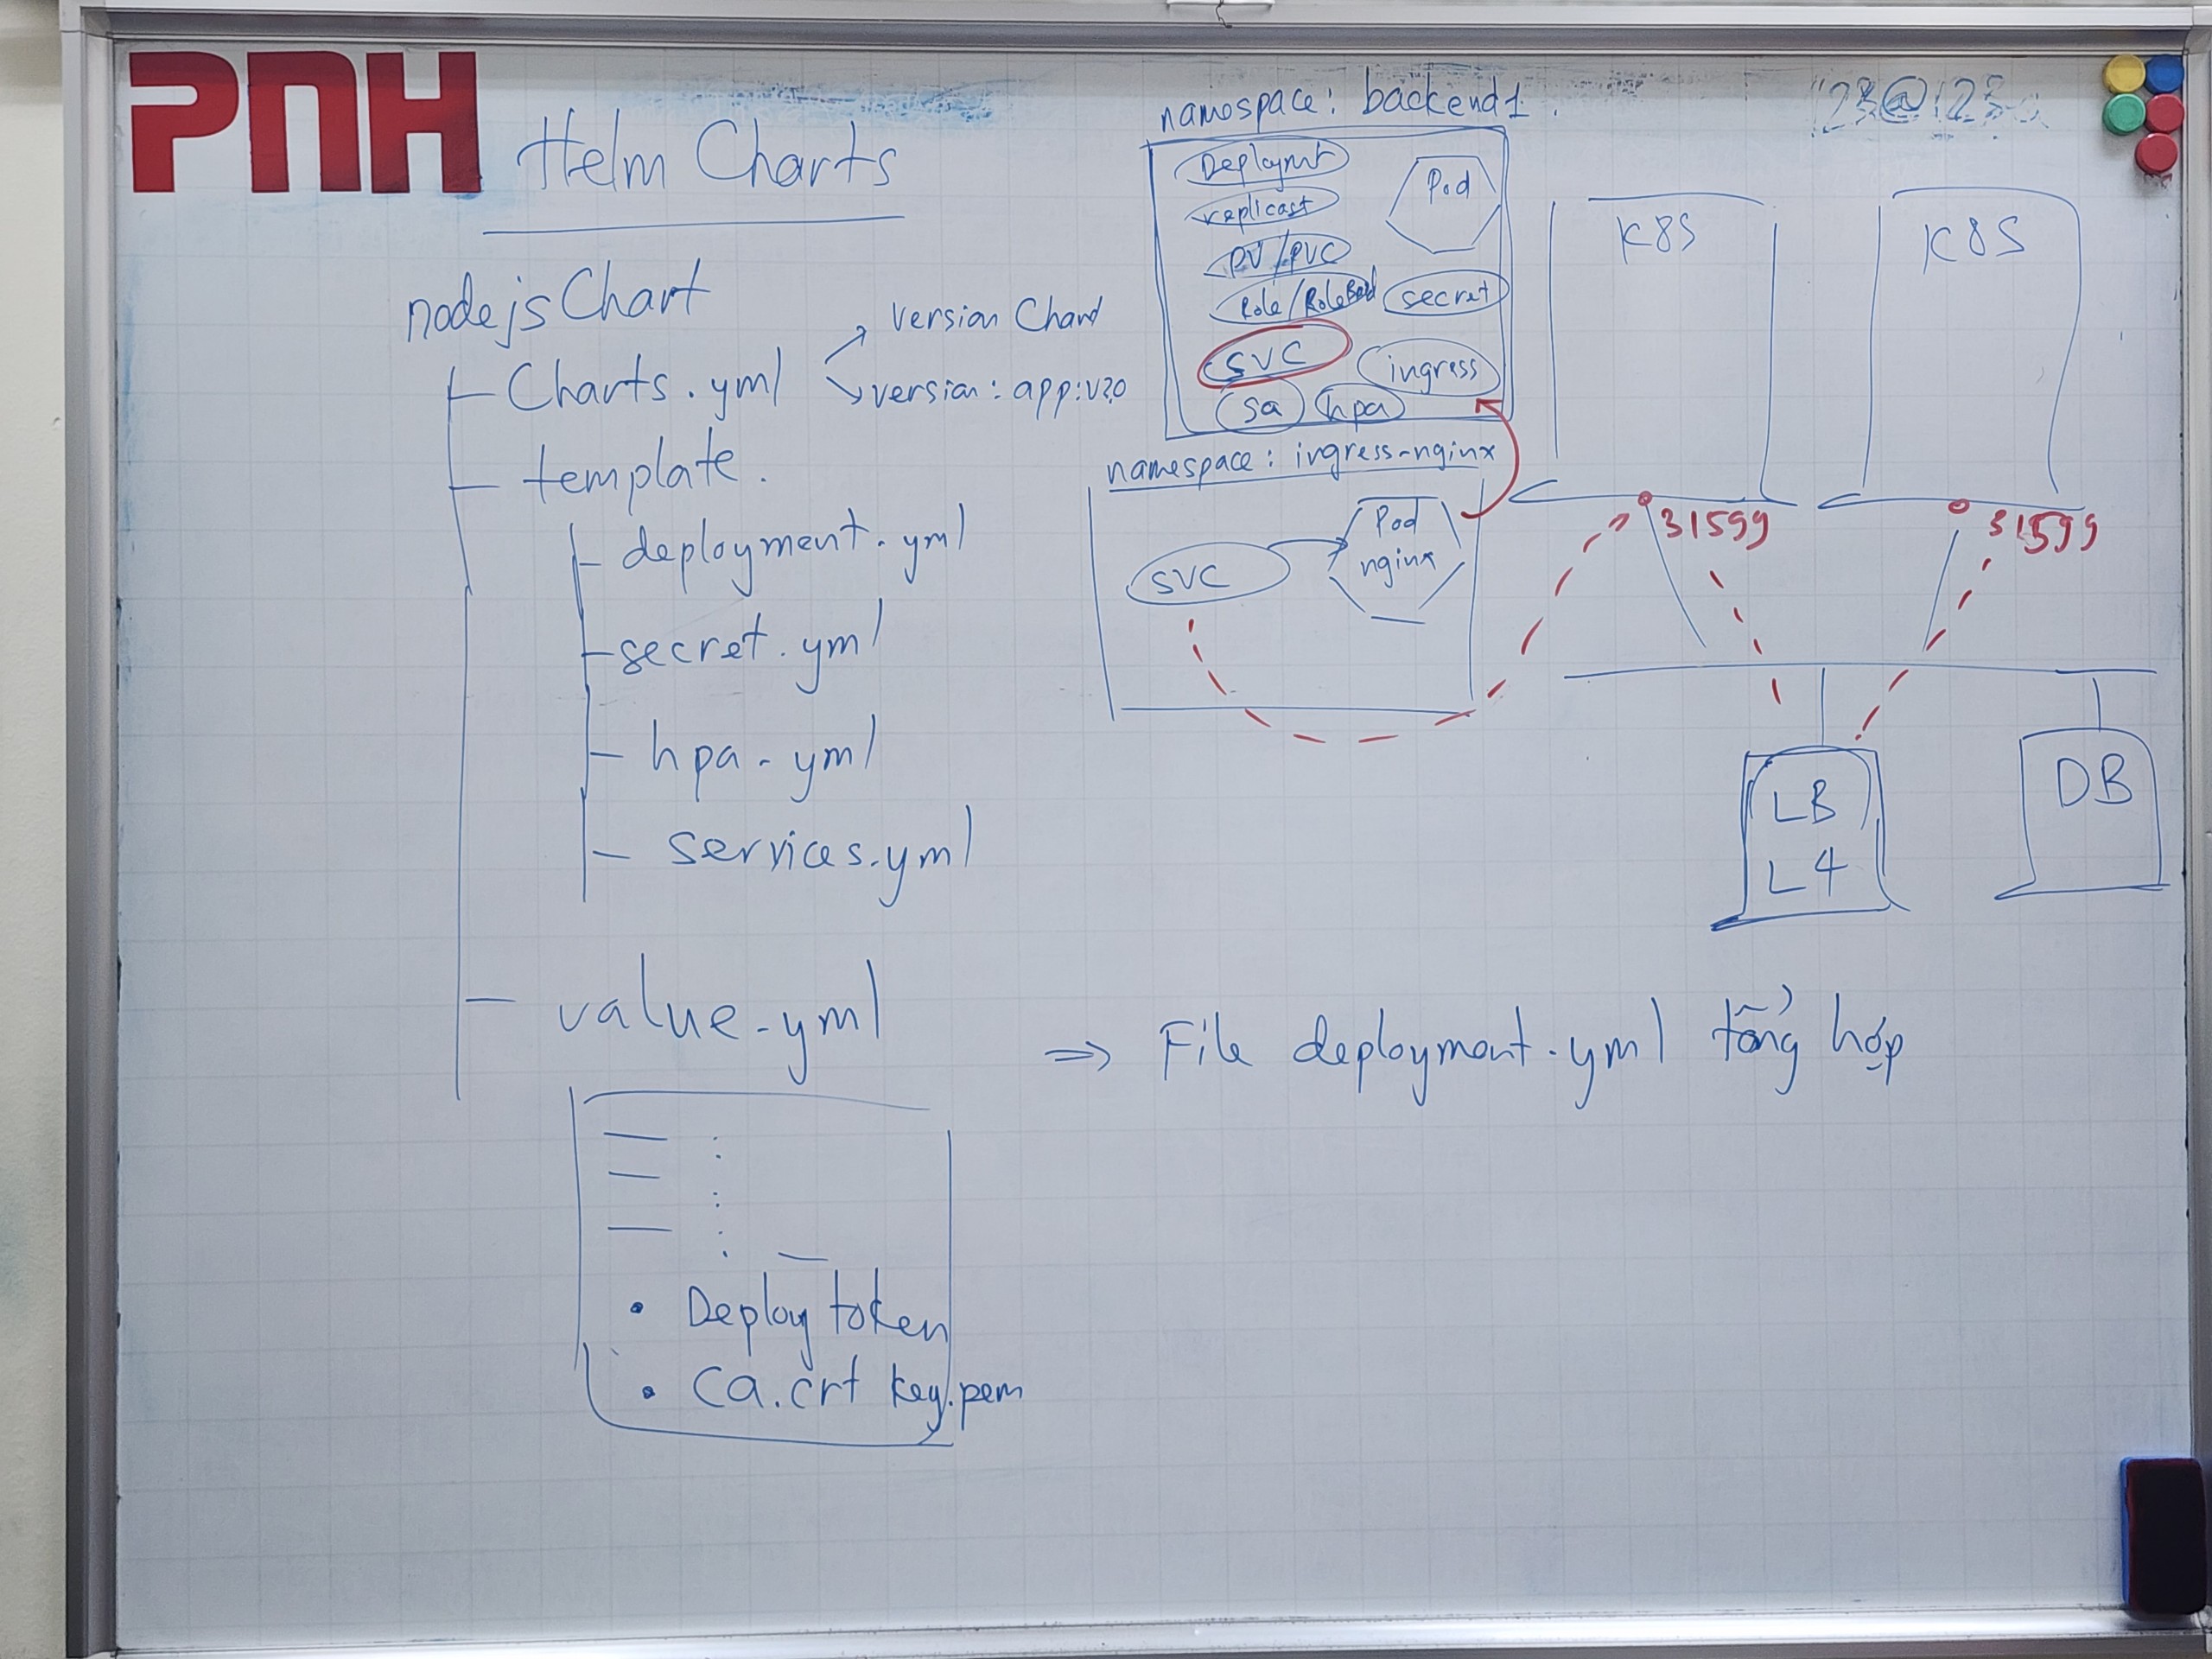 PNH
Helm Charts
nodejs Chart
Charts.yml
version Chard
version: app:v2.0
template.
deployment.yml
secret.yml
hpa.yml
services.yml
value.yml
Deploy token
Ca.crt key.pem
=> File deployment.yml tổng hợp
namespace: backend1.
Deploymt
replicast
Pod
PV/PVC
Role/RoleBind
secret
SVC
ingress
sa
hpa
namespace: ingress-nginx
SVC
Pod
nginx
K8S
K8S
31599
31599
LB
L4
DB